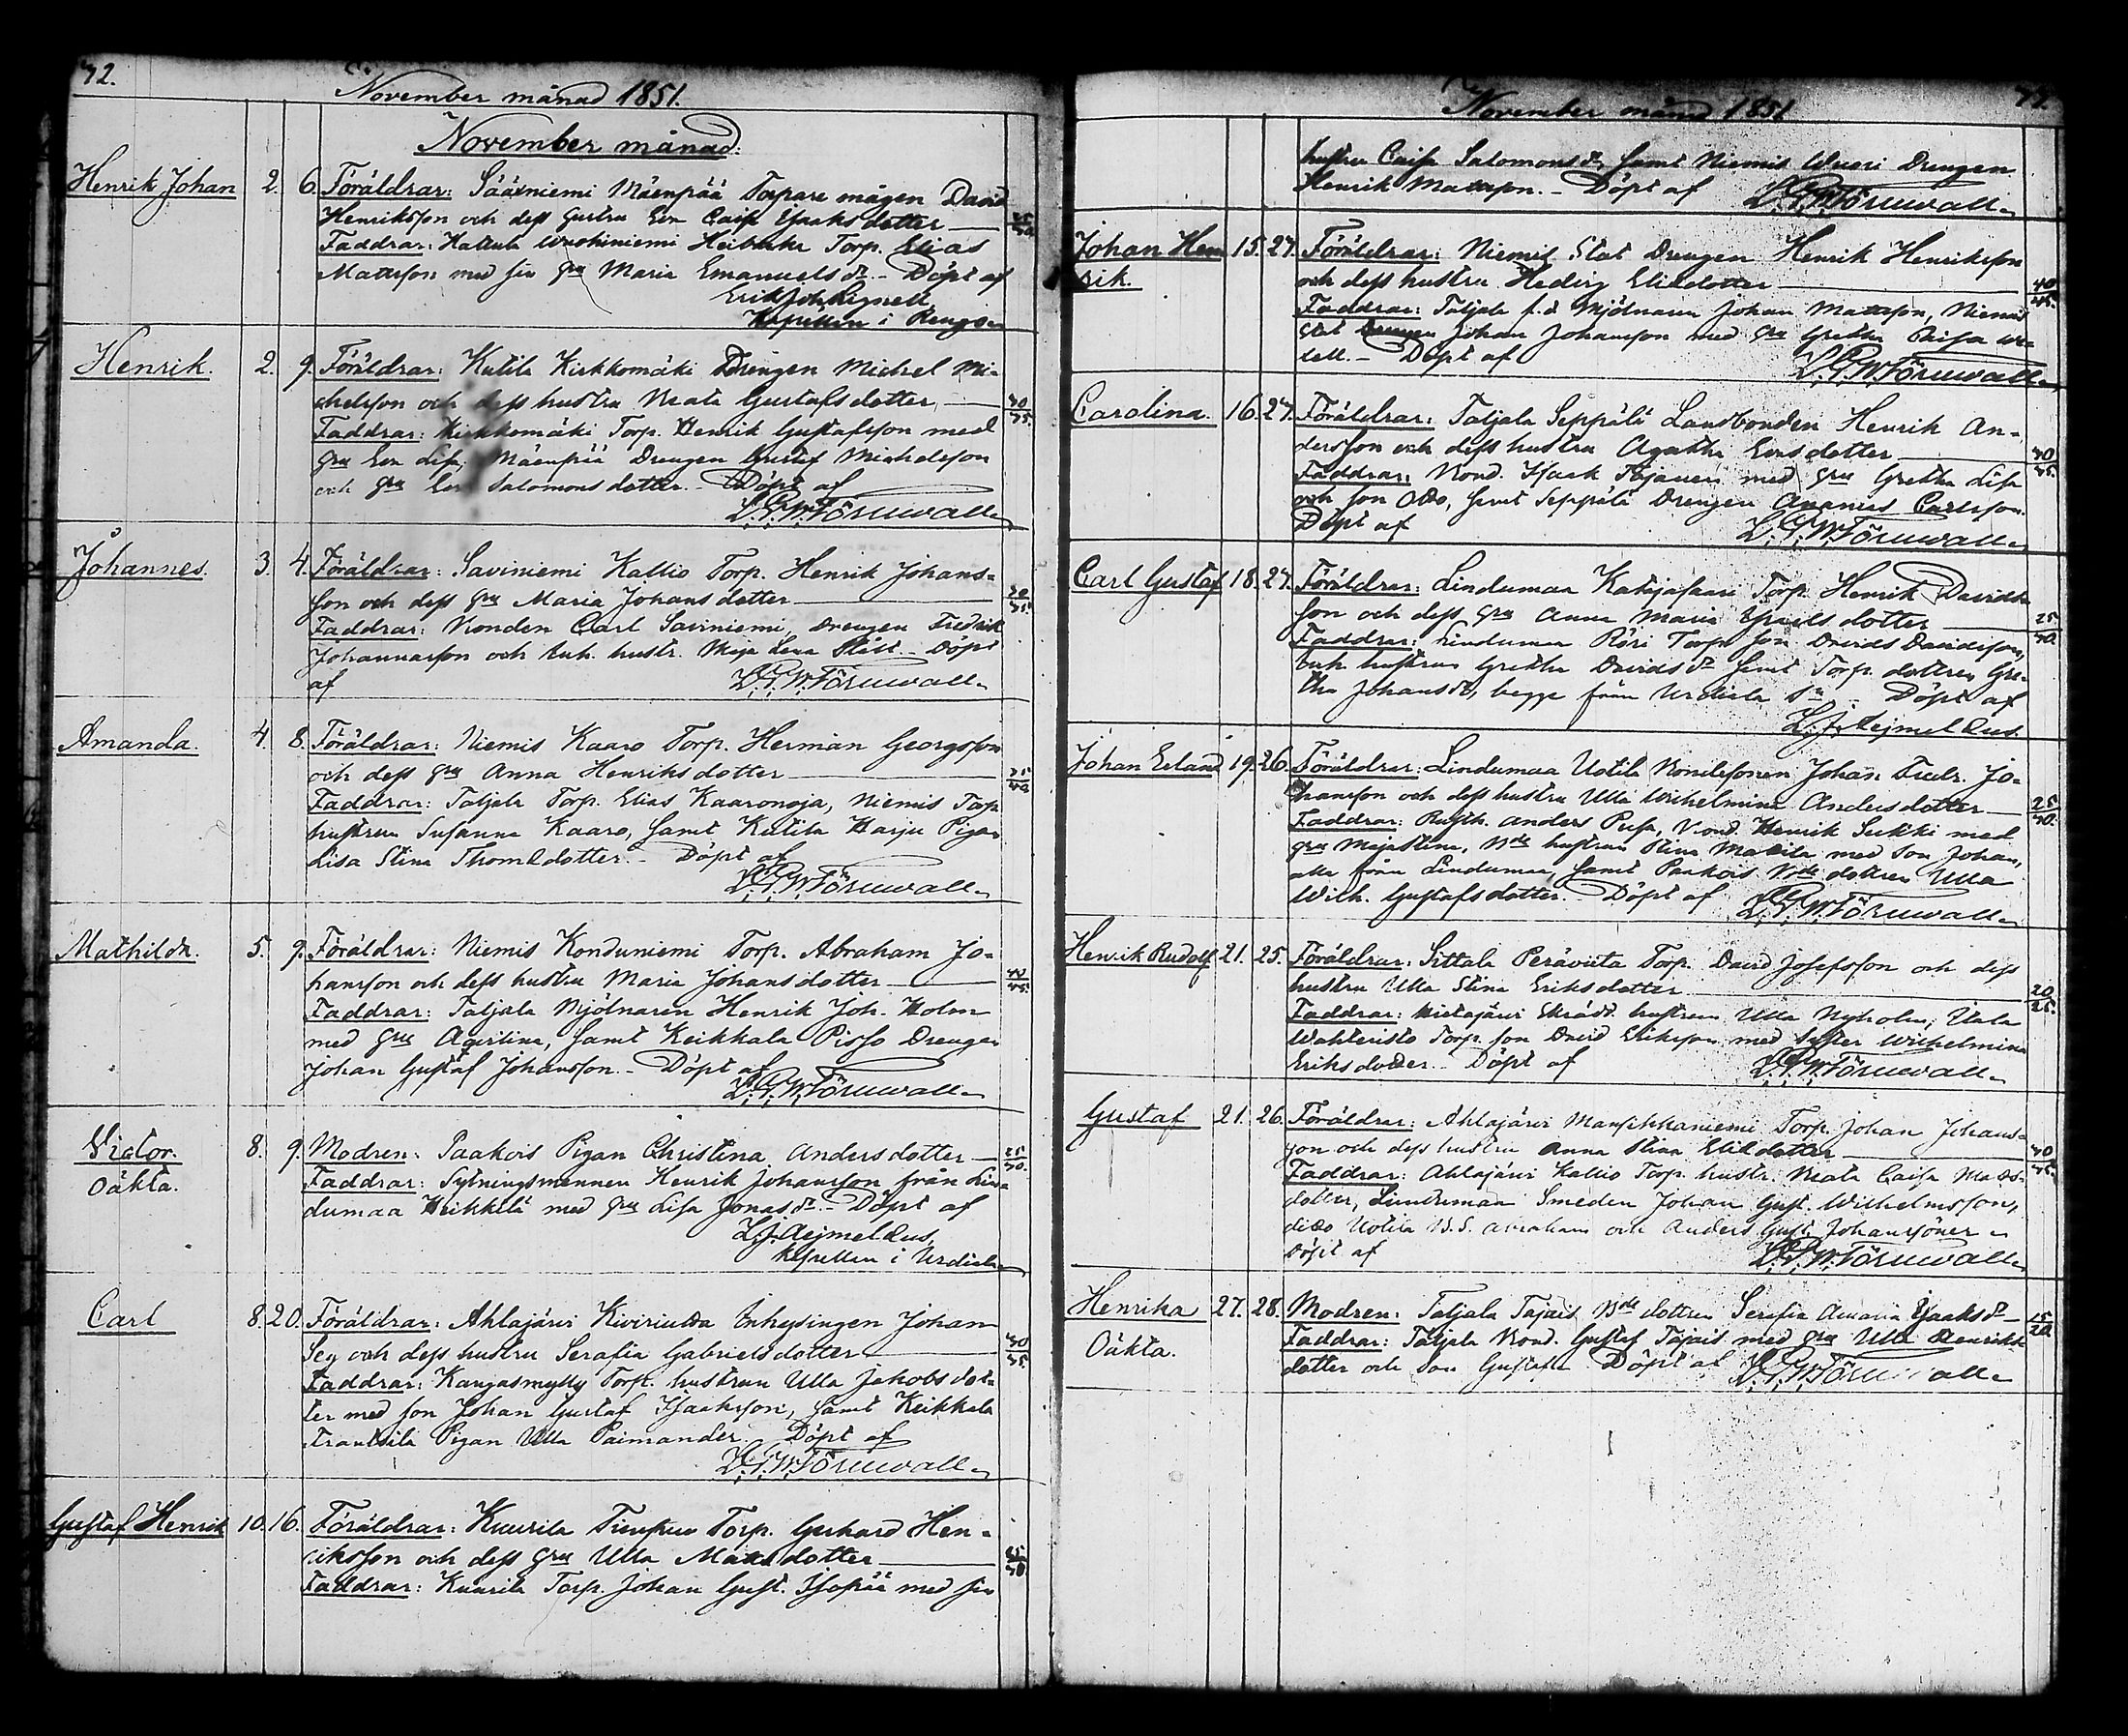 72.
November månad 1851.
November månad:
Henrik Johan 2. 6. Föräldrar: Sääxniemi Mäenpää Torpare mågen David
Henriksson och dess hustru Eva Caisa Isaksdotter
Faddrar: Hattula Torp. Elias
Mattsson med sin hru Maria Emanuels dr. Döpt af
Erik Joh. Lignell
Kapellan i Rengo
Henrik. 2. 9. Föräldrar: Kutila Kirkkomäki Drengen Michel Mi-
chelsson och dess hustru Beata Gustafsdotter, 40/45.
Faddrar: Kirkkomäki Torp. Henrik Gustafsson med
hru Eva Lisa, Mäenpää Drengen Gustaf Michelsson
och hru Eva Salomonsdotter. Döpt af
L. G. W. Törnwall
Johannes. 3. 4. Föräldrar: Saviniemi Kallio Torp. Henrik Johans-
son och dess hru Maria Johansdotter
Faddrar: Bonden Carl Saviniemi, Drengen Fredrik
Johannesson och Enh. hustr. Maja Lena Slätt. Döpt
af L. G. W. Törnwall
Amanda. 4. 8. Föräldrar: Niemis Kaaro Torp. Herman Georgsson
och dess hru Anna Henriksdotter 35/40
Faddrar: Taljala Torp. Elias Kaaronoja, Niemis Torp.
hustrun Susanna Kaaro, samt Kutila Harju Pigan
Lisa Stina Thomædotter. Döpt af
L. G. W. Törnwall
Mathilda. 5. 9. Föräldrar: Niemis Konduniemi Torp. Abraham Jo-
hansson och dess hustru Maria Johansdotter 40/45.
Faddrar: Taljala Mjölnaren Henrik Joh. Holm
med hru Agistina, samt Keikkala Pisso Drengen
Johan Gustaf Johansson. Döpt af
L. G. W. Törnwall
Victor. 8. 9. Modren: Paakois Pigan Christina Andersdotter 25/30.
Oäkta. Faddrar: Sytningsmannen Henrik Johansson från Lin-
dumaa Heikkilä med hru Lisa Jonasdr. Döpt af
L. J. Aejmelæus,
Kapellan i Urdiala
Carl 8. 20. Föräldrar: Ahlajärvi Kivirinta Inhysingen Johan
Seg och dess hustru Serafia Gabrielsdotter
Faddrar: Kangasmylly Torp. hustrun Ulla Jakobsdot-
ter med son Johan Gustaf Isaksson, samt Keikkala
Franssila Pigan Ulla Paimander. Döpt af
L. G. W. Törnwall
Gustaf Henrik 10. 16. Föräldrar: Kuurila Torp. Gerhard Hen-
riksson och dess hru Ulla Mattsdotter
Faddrar: Kuurila Torp. Johan Gust. Isopää med sin
November månad 1851
hustru Caisa Salomonsdr, samt Niemis Wuori Drengen
Henrik Mattsson. Döpt af L. G. W. Törnwall
Johan Hen 15. 27. Föräldrar: Niemis Slot Drengen Henrik Henriksson
rik. och dess hustru Hedvig Eliædotter 40/45.
Faddrar: Taljala f.d Mjölnaren Johan Mattsson, Niemis
Slot Drengen Johan Johansson med hru Gretha Caisa
Döpt af L. G. W. Törnwall
Carolina. 16. 27. Föräldrar: Taljala Seppälä Landbonden Henrik An-
dersson och dess hustru Agatha Eriksdotter 40/45.
Faddrar: Bond. Isaak Tajanen med hru Gretha Lisa
och son Otto, samt Seppälä Drengen Ananias Carlsson.
Döpt af L. G. W. Törnwall
Carl Gustaf 18. 27. Föräldrar: Lindumaa Katajasaari Torp. Henrik Davids
son och dess hru Anna Maria Israelsdotter 25/30
Faddrar: Lindumaa Torp. son David Davidsson,
Enh. hustrun Gretha Davidsdr samt Torp. dottren Gre-
tha Johansdr, begge från Urdiala Sn. Döpt af
L. J. Aejmelæus.
Johan Erland 19. 26. Föräldrar: Lindumaa Uotila Bondesonen Johan Fredr. Jo-
hansson och dess hustru Ulla Wilhelmina Andersdotter 25/30.
Faddrar: Rusth. Anders Pusa, Bond. Henrik Sukki med
hru Majastina, Bde hustrun Stina Mattila med son Johan,
alla från Lindumaa, samt Paakois Bde dottren Ulla
Wilh. Gustafsdotter. Döpt af L. G. W. Törnwall
Henrik Rudolf 21. 25. Föräldrar: Sittala Peräviita Torp. David Josefsson och dess
hustru Ulla Stina Eriksdotter 20/25.
Faddrar: Skrädd. hustrun Ulla Nyholm, Uala
Torp. son David Eriksson med syster Wilhelmina
Eriksdotter. Döpt af L. G. W. Törnwall
Gustaf 21. 26. Föräldrar: Ahlajärvi Mansikkaniemi Torp. Johan Johans-
son och dess hustru Anna Stina Eliædotter 40/45.
Faddrar: Ahlajärvi Kallio Torp. hustr. Beata Caisa Matts-
dotter, Lindumaa Smeden Johan Gust. Wilhelmsson,
ditto Uotila B.S. Abraham och Anders Gust. Johanssöner.
Döpt af L. G. W. Törnwall
Henrika 27. 28. Modren: Taljala Tajais Bde dottren Serafia Amanda Isaksdr 15/20
Oäkta. Faddrar: Taljala Bond. Gustaf Tajais med hru Ulla Henriks
dotter och son Gustaf. Döpt af L. G. W. Törnwall